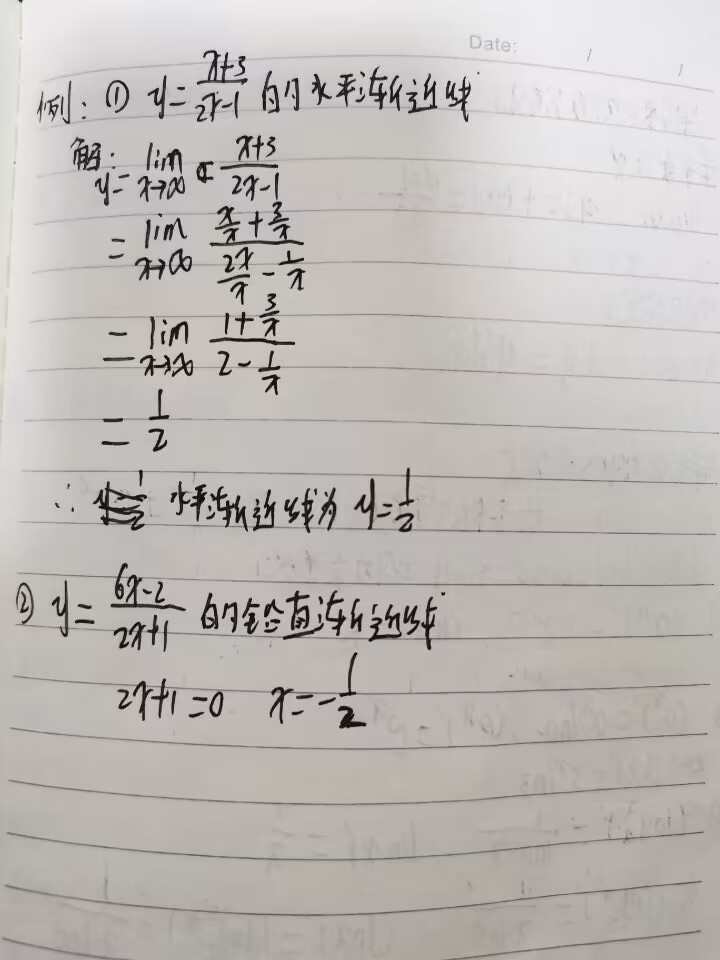 Date: / /
例：① y = (x+3)/(2x-1) 的水平渐近线
解：
y = lim x→∞ (x+3)/(2x-1)
= lim x→∞ (x/x + 3/x)/(2x/x - 1/x)
= lim x→∞ (1 + 3/x)/(2 - 1/x)
= 1/2
∴ 水平渐近线为 y = 1/2
② y = (6x-2)/(2x+1) 的铅直渐近线
2x+1=0 x=-1/2